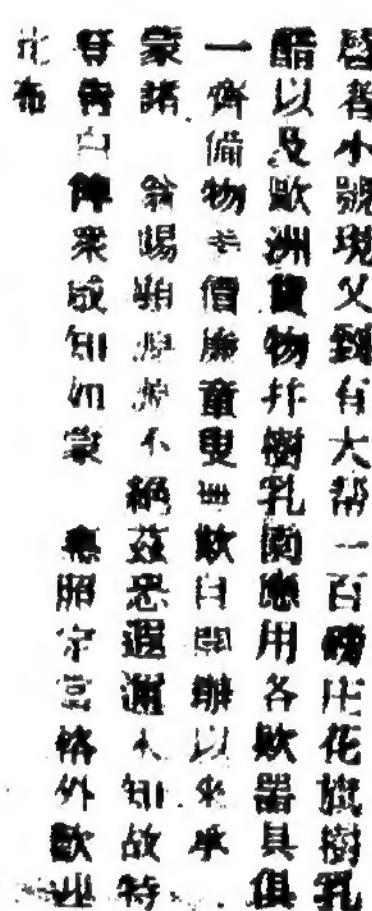 啓者小號現又到有大帮一百磅庄花旗樹乳
醋以及歐洲貨物并樹乳園應用各欵器具俱
一齊備物美價廉童叟無欺自開辦以來承
蒙諸 翁賜顧源源不絕茲恐遐邇未知故特
登告白俾衆咸知如蒙 惠照定當格外歡迎
此布